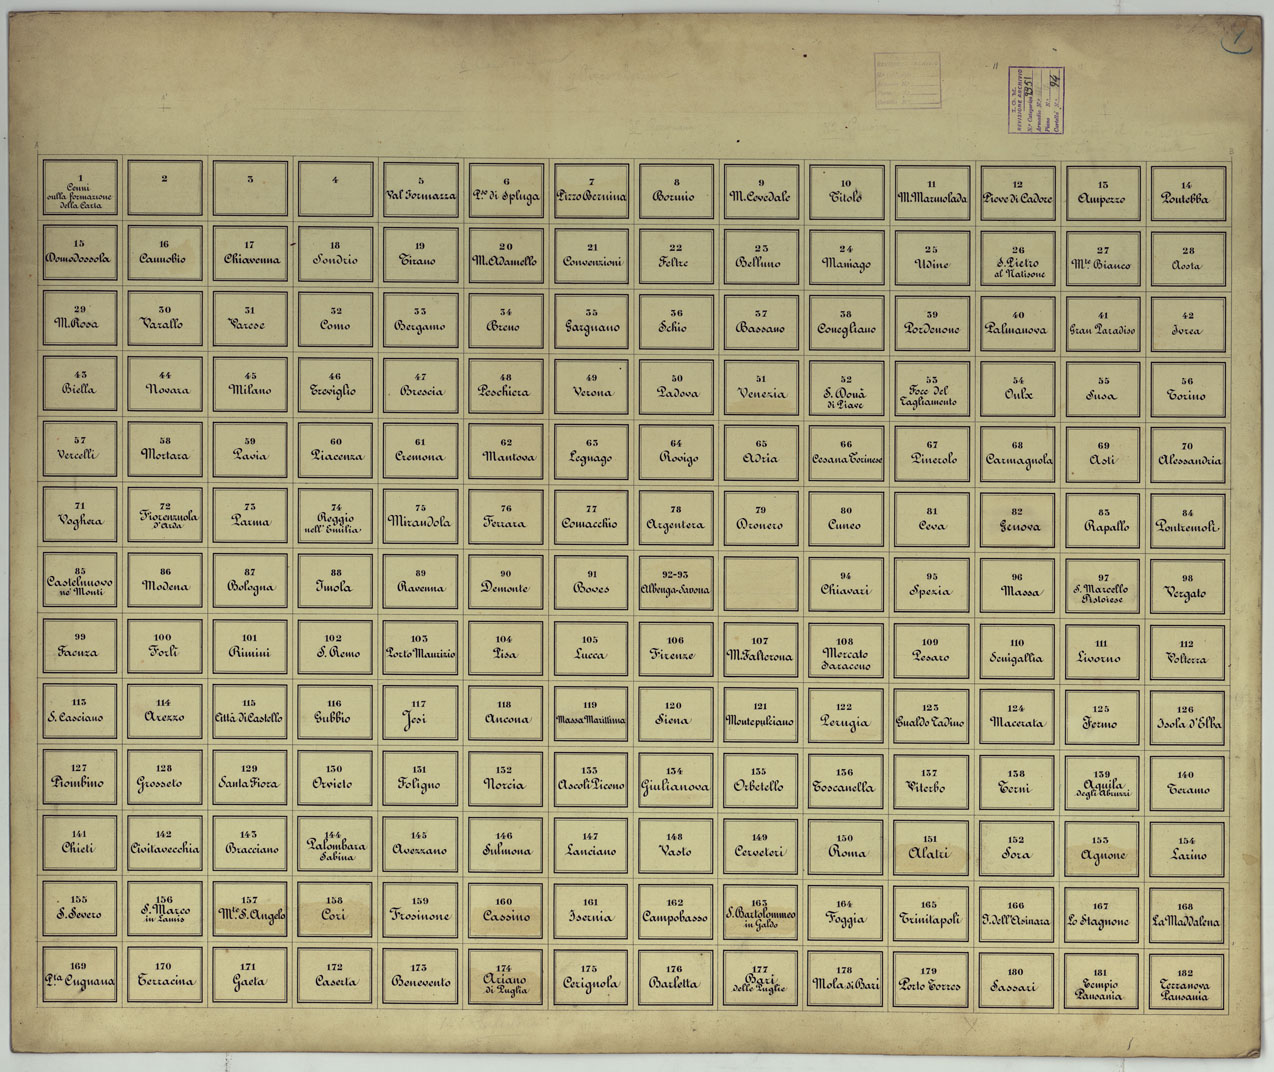 1
I. G. M.
REVISIONE ARCHIVIO
N.º Categorico 9951
Armadio N.º
Piano N.º
Cartella N.º 94
1
Cenni
sulla formazione
della Carta
2
3
4
5
Val Formazza
6
P.so di Spluga
7
Pizzo Bernina
8
Bormio
9
M. Cevedale
10
Titolo
11
M. Marmolada
12
Pieve di Cadore
13
Ampezzo
14
Pontebba
15
Domodossola
16
Cannobio
17
Chiavenna
18
Sondrio
19
Tirano
20
M. Adamello
21
Convenzioni
22
Feltre
23
Belluno
24
Maniago
25
Udine
26
S. Pietro
al Natisone
27
M.te Bianco
28
Aosta
29
M. Rosa
30
Varallo
31
Varese
32
Como
33
Bergamo
34
Breno
35
Gargnano
36
Schio
37
Bassano
38
Conegliano
39
Pordenone
40
Palmanova
41
Gran Paradiso
42
Ivrea
43
Biella
44
Novara
45
Milano
46
Treviglio
47
Brescia
48
Peschiera
49
Verona
50
Padova
51
Venezia
52
S. Donà
di Piave
53
Foce del
Tagliamento
54
Oulx
55
Susa
56
Torino
57
Vercelli
58
Mortara
59
Pavia
60
Piacenza
61
Cremona
62
Mantova
63
Legnago
64
Rovigo
65
Adria
66
Cesana Torinese
67
Pinerolo
68
Carmagnola
69
Asti
70
Alessandria
71
Voghera
72
Fiorenzuola
d'Arda
73
Parma
74
Reggio
nell'Emilia
75
Mirandola
76
Ferrara
77
Comacchio
78
Argentera
79
Dronero
80
Cuneo
81
Ceva
82
Genova
83
Rapallo
84
Pontremoli
85
Castelnuovo
ne' Monti
86
Modena
87
Bologna
88
Imola
89
Ravenna
90
Demonte
91
Boves
92-93
Albenga-Savona
94
Chiavari
95
Spezia
96
Massa
97
S. Marcello
Pistoiese
98
Vergato
99
Faenza
100
Forlì
101
Rimini
102
S. Remo
103
Porto Maurizio
104
Pisa
105
Lucca
106
Firenze
107
M. Falterona
108
Mercato
Saraceno
109
Pesaro
110
Senigallia
111
Livorno
112
Volterra
113
S. Casciano
114
Arezzo
115
Città di Castello
116
Gubbio
117
Jesi
118
Ancona
119
Massa Marittima
120
Siena
121
Montepulciano
122
Perugia
123
Gualdo Tadino
124
Macerata
125
Fermo
126
Isola d'Elba
127
Piombino
128
Grosseto
129
Santa Fiora
130
Orvieto
131
Foligno
132
Norcia
133
Ascoli Piceno
134
Giulianova
135
Orbetello
136
Toscanella
137
Viterbo
138
Terni
139
Aquila
degli Abruzzi
140
Teramo
141
Chieti
142
Civitavecchia
143
Bracciano
144
Palombara
Sabina
145
Avezzano
146
Sulmona
147
Lanciano
148
Vasto
149
Cerveteri
150
Roma
151
Alatri
152
Sora
153
Agnone
154
Larino
155
S. Severo
156
S. Marco
in Lamis
157
M.te S. Angelo
158
Cori
159
Frosinone
160
Cassino
161
Isernia
162
Campobasso
163
S. Bartolommeo
in Galdo
164
Foggia
165
Trinitapoli
166
I. dell'Asinara
167
Lo Stagnone
168
La Maddalena
169
P.ta Cugnana
170
Terracina
171
Gaeta
172
Caserta
173
Benevento
174
Ariano
di Puglia
175
Cerignola
176
Barletta
177
Bari
delle Puglie
178
Mola di Bari
179
Porto Torres
180
Sassari
181
Tempio
Pausania
182
Terranova
Pausania